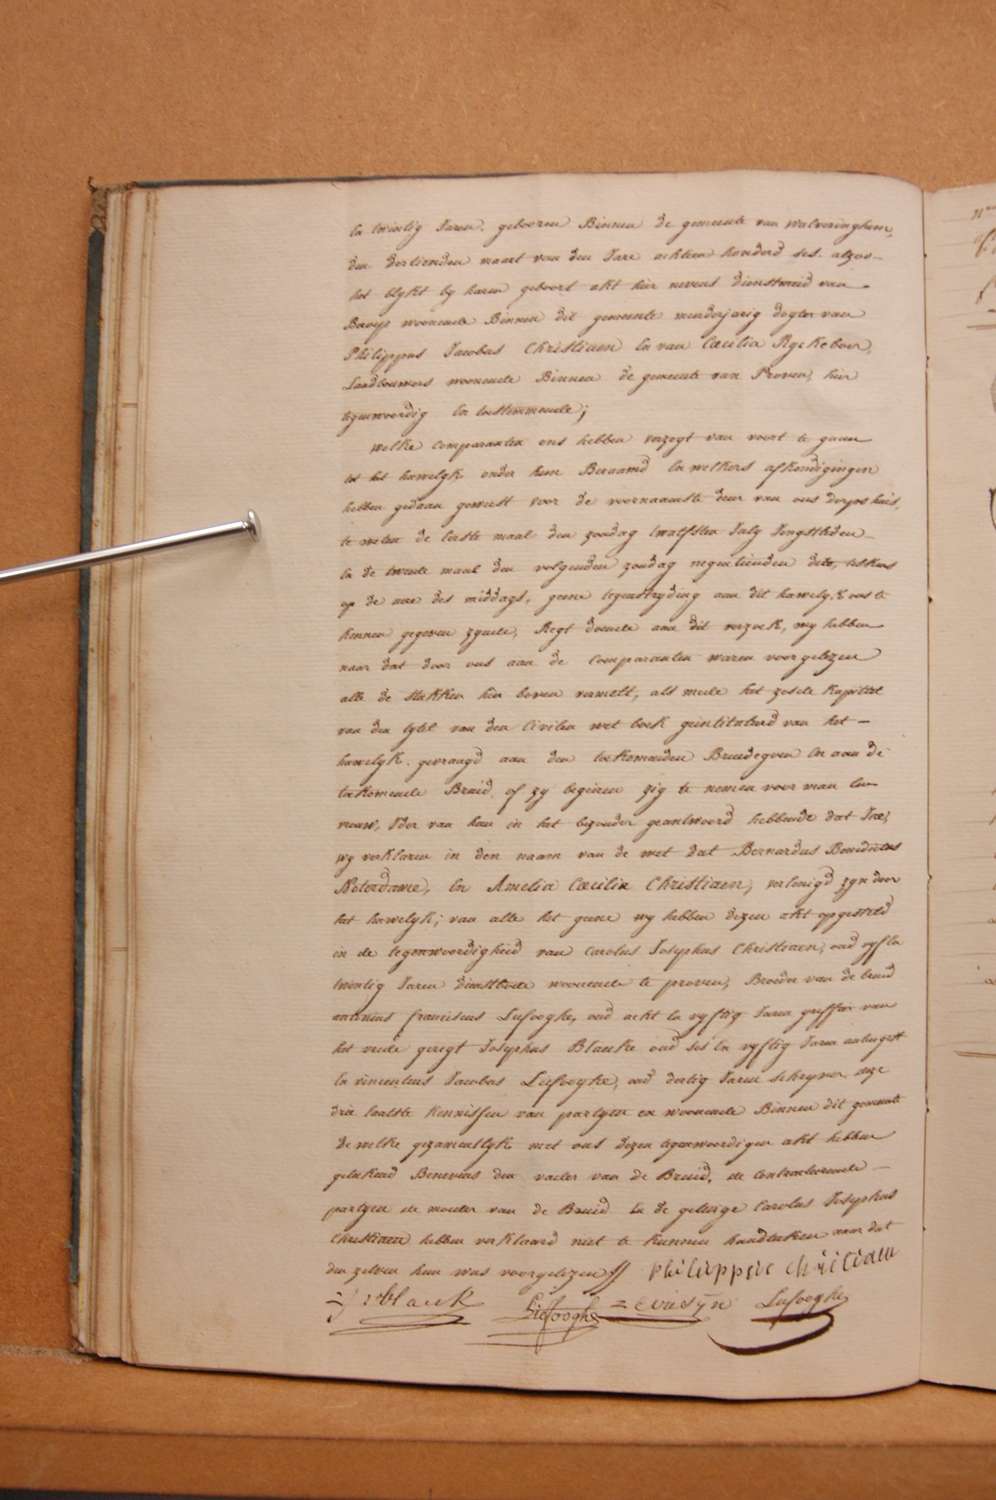 En twintig Jaren, gebooren Binnen de gemeente van Wulveringhem,
den dertienden maart van den Jare achtien honderd ses. alzoo-
het blykt by haren geboort akt hier nevens dienstmeid van
woonende Binnen dit gemeente minderjarig dogter van
Philippus Jacobus Christiaen En van Cæcilia Ryckeboer,
Landbouwers woonende Binnen de gemeente van Proven, hier
tegenwoordig En toestemmende;
welke comparanten ons hebben verzogt van voort te gaan
tot het hawelyk onder hun Beraamd En welkers afkondigingen
hebben gedaan geweest voor de voornaamste deur van ons dorpshuis,
te weten de eerste maal den zondag twalfsten July Jongstleden-
En de tweede maal den volgenden zondag negentienden dito, telkens
op de ure des middags, geene tegenstryding aan dit hawelyk ons te
kennen gegeven zynde, Regt doende aan dit verzoek, wy hebben
naar dat door ons aan de comparanten waren voorgelezen
alle de stukken hier boven vermelt, als mede het zesde kapittel
van den tytel van den Civilen wet boek geintituleerd van het-
hawelyk. gevraagd aan den toekomenden Bruidegom En aan de
toekomende Bruid, of zy begeiren zig te nemen voor man En
vrouw, Ider van hun in het bezonder geantwoord hebbende dat Jae;
wy verklaren in den naam van de wet dat Bernardus Benedictus
Noterdame, En Amelia Cæcilia Christiaen, verlenigd zyn door
het hawelyk; van alle het geene wy hebben dezen akt opgesteld
in de tegenwoordigheid van Carolus Josephus Christiaen, oud vyf En
twintig Jaren dienstbode woonende te proven, Broeder van de bruid
franciscus Lefooghe, oud acht En vyftig Jaren griffier van
het vrede geregt Josephus Blaucke oud ses En vyftig Jaren
En vincentius Jacobus Lefooghe, oud dertig Jaren schryver deze
drie laatste kennissen van partyen en woonende Binnen dit gemeente
de welke gezamentlyk met ons dezen tegenwoordigen akt hebben
getekend Benevens den vader van de Bruid, de contracterende-
partyen de moeder van de Bruid En de getuige Carolus Josephus
Christiaen hebben verklaard niet te kunnen handteeken naar dat
den zelven hun was voorgelezen // philippus Christiaen
Lefooghe Lefooghe